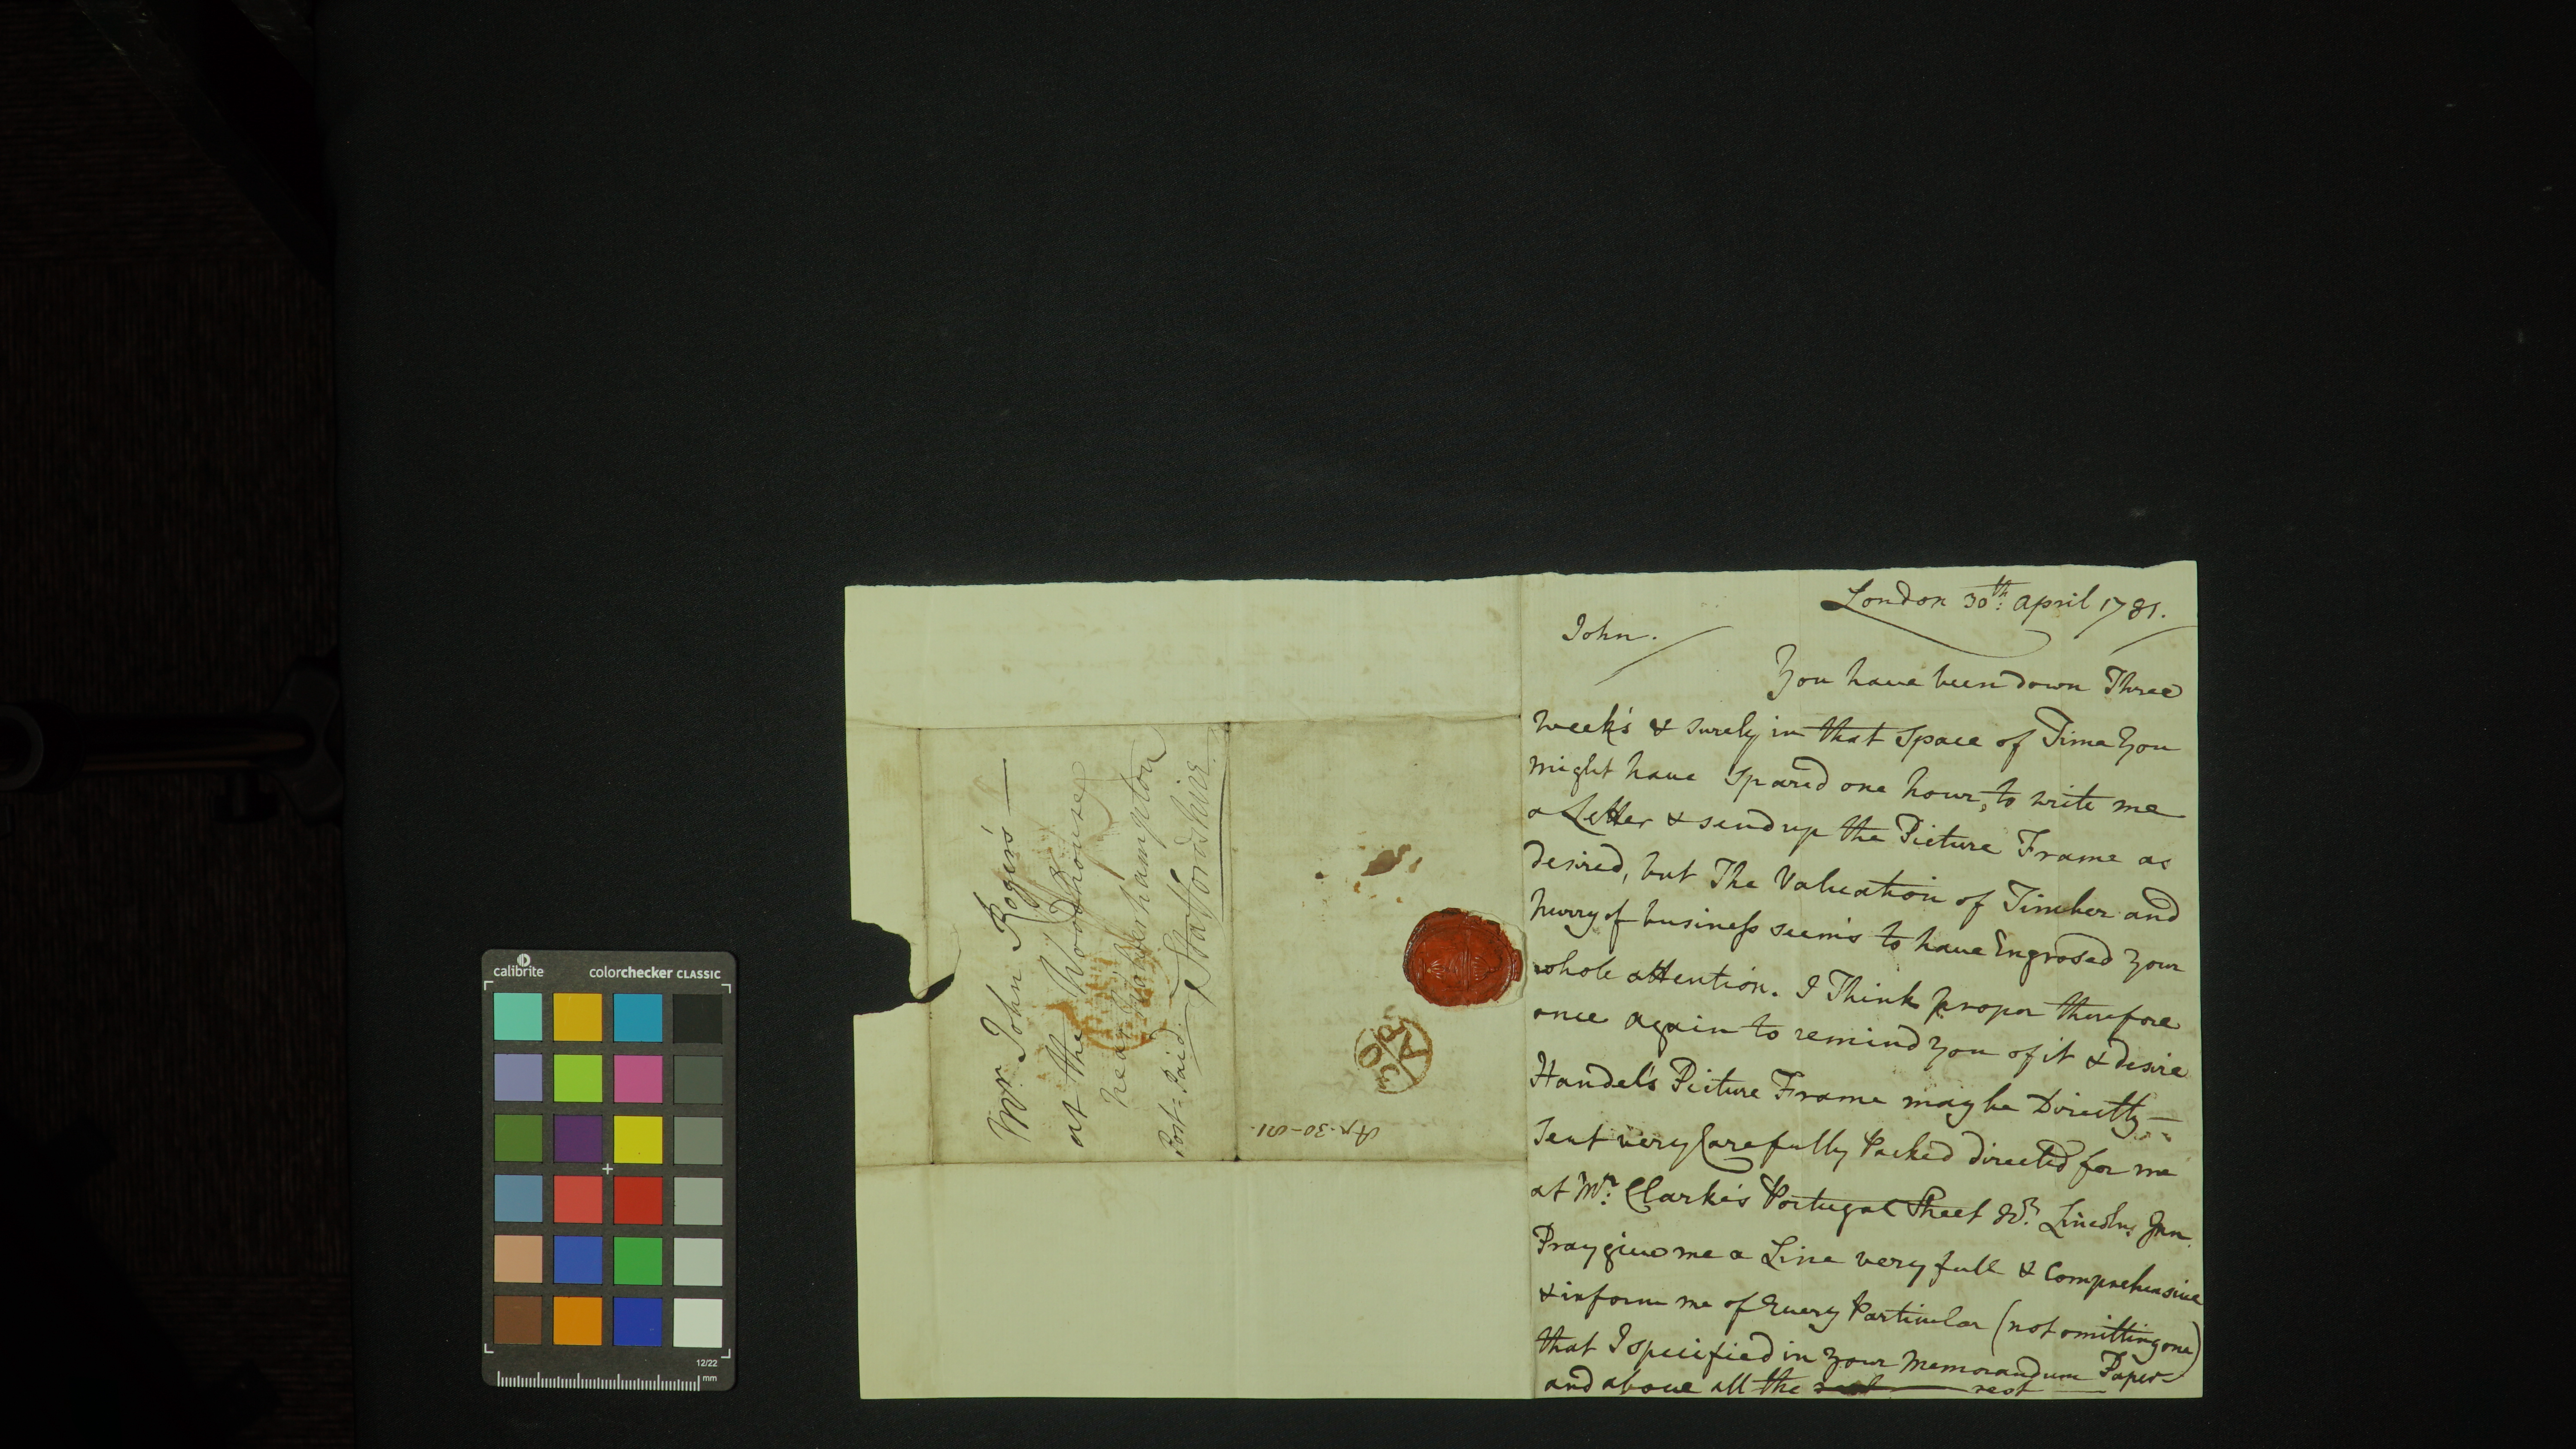 London 30th: April 1781.
John.
You have been down Three
Week's & surely in that Space of Time You
might have Spared one hour, to write me
a Letter & send up the Picture Frame as
desired, but The Valuation of Timber and
hurry of business seem's to have Engrosed Your
whole attention. I Think proper therefore
once again to remind You of it & desire
Handel's Picture Frame may be Directly
Sent very Carefully Packed directed for me
at Mr: Clarke's Portugal Street Lincolns Inn
Pray give me a Line very full & Comprehensive
& inform me of Every Particular (not omitting one)
that I specified in Your Memorandum Paper
and above all the rest
Mr. John Rogers
at the Woodhouse
near Wolverhampton
Staffordshire
Post = Paid.
30
AP
Ap. 30-81.
calibrite
colorchecker CLASSIC
12/22
mm